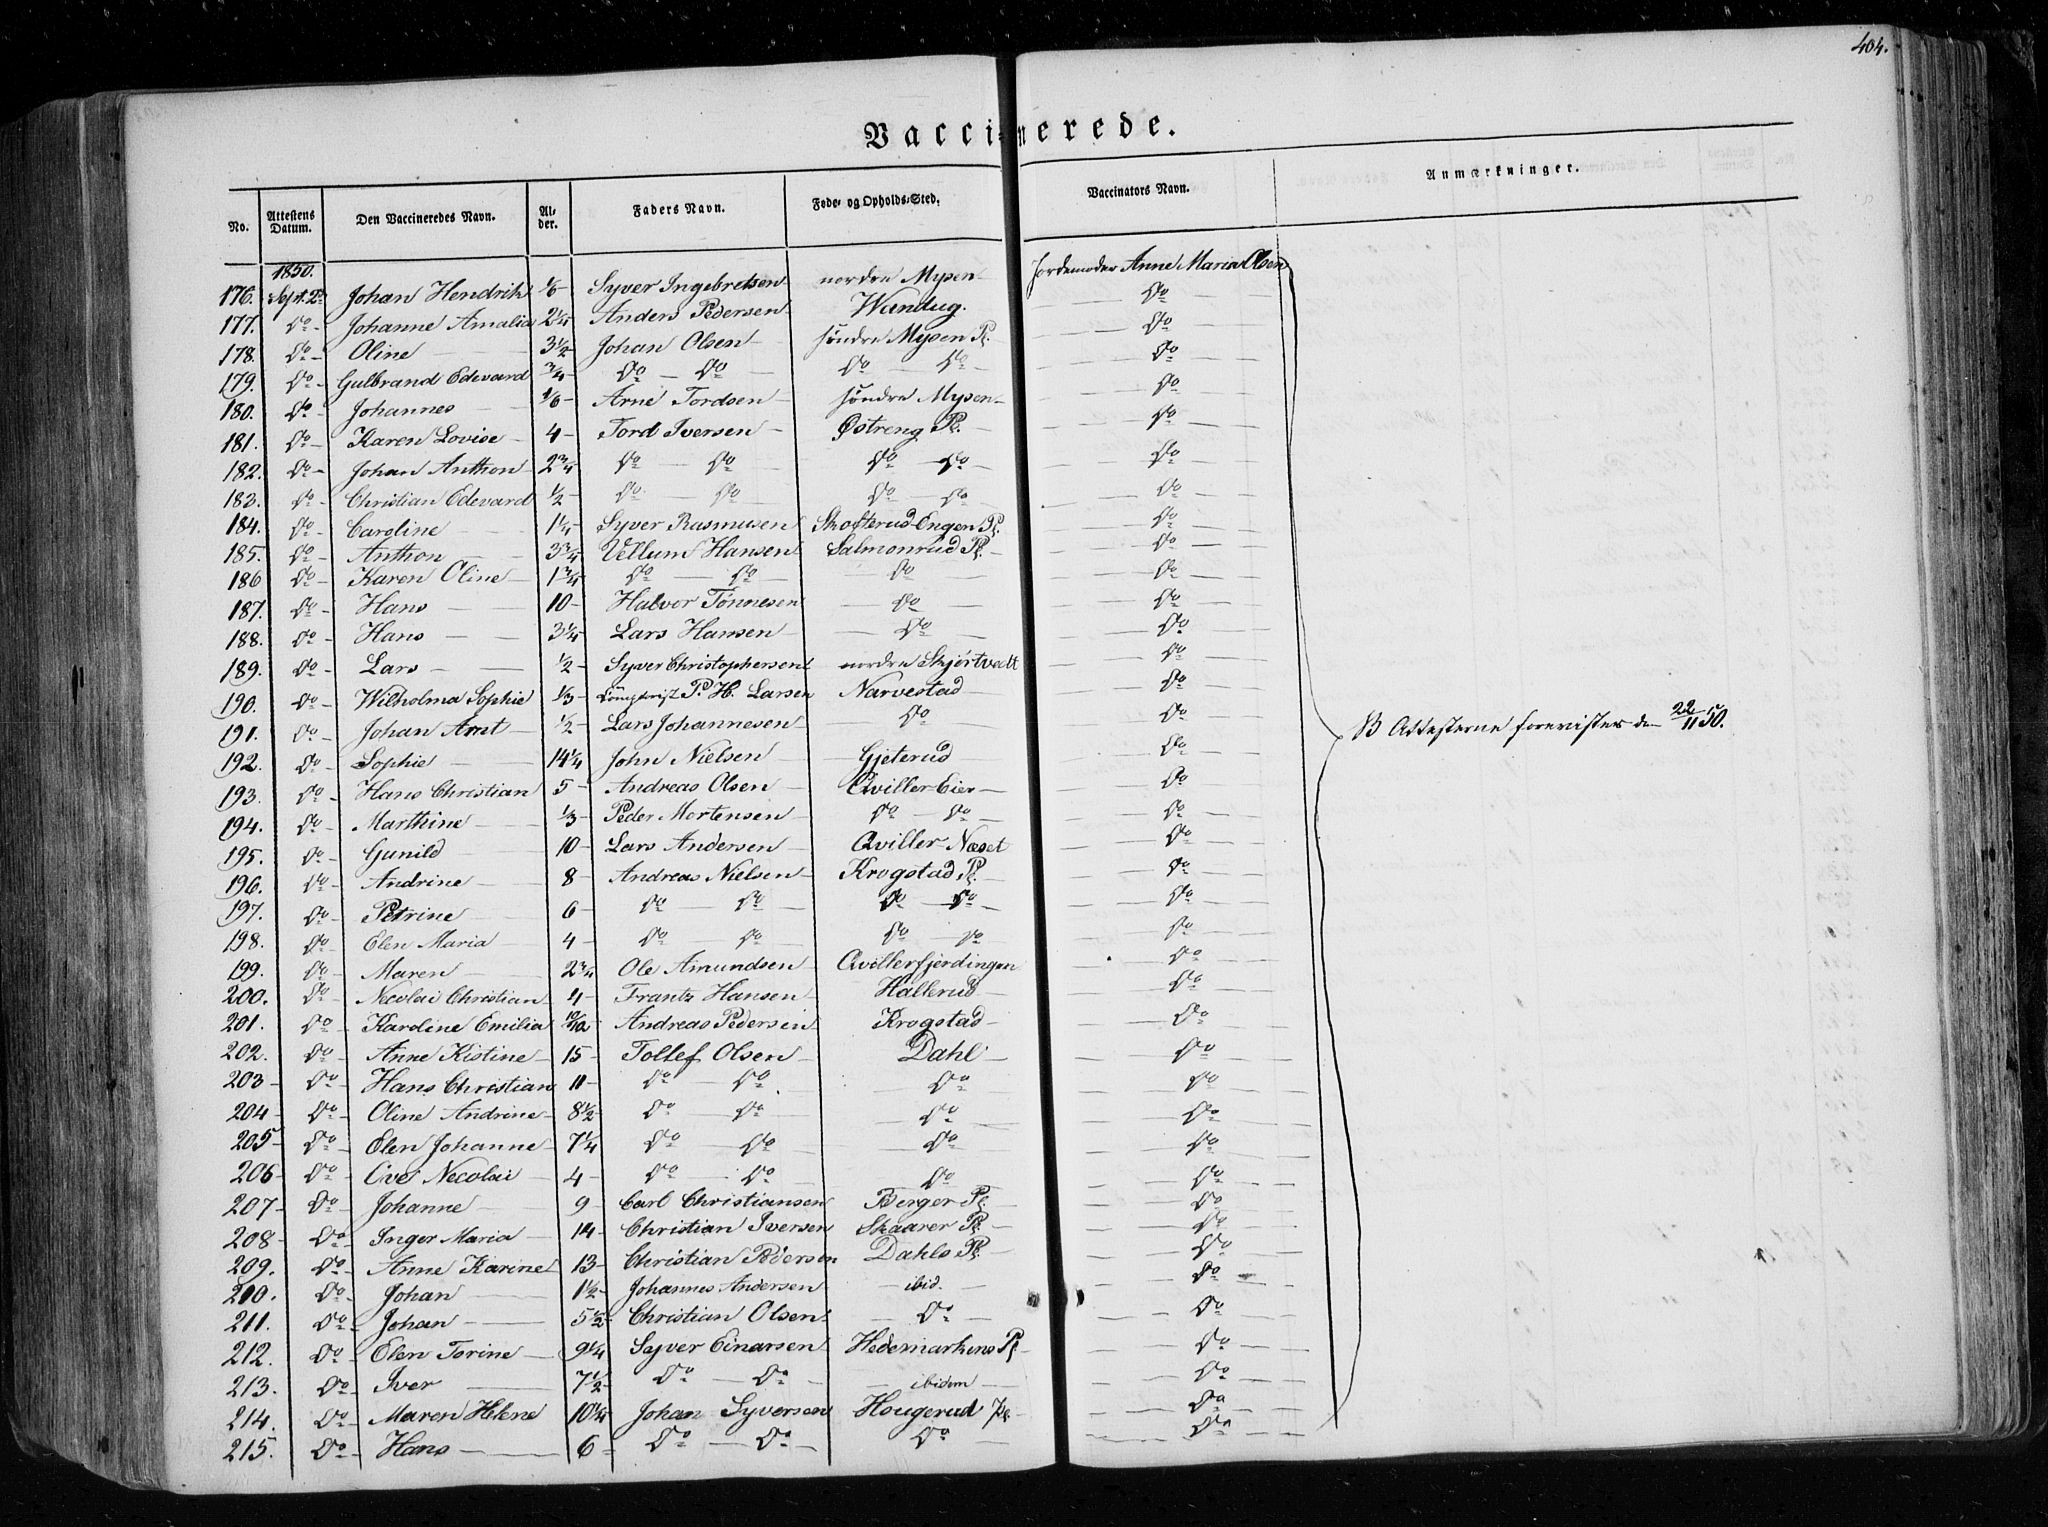 404.
Vaccinerede.
No. Attestens Datum. Den Vaccineredes Navn. Al-der. Faders Navn. Føde- og Opholds-Sted. Vaccinators Navn. Anmærkninger.
1850.
176. Sept. 2 Johan Hendrik 1/6 Syver Ingebretsen nordre Mysen Jordemoder Anne Maria Olsen
177. Do Johanne Amalia 2 1/4 Anders Pedersen Wandug. Do
178. Do Oline 3 1/2 Johan Olsen søndre Mysen Pl. Do
179. Do Gulbrand Edevard 3/4 Do Do Do Do Do
180. Do Johannes 1/6 Arne Tordsen søndre Mysen Do
181. Do Karen Lovise 4 Tord Iversen Østreng Pl. Do
182. Do Johan Anthon 2 3/4 Do Do Do Do Do
183. Do Christian Edevard 1/2 Do Do Do Do Do
184. Do Caroline 1 1/4 Syver Rasmusen Skofterud Engen Pl. Do
185. Do Anthon 3 3/4 Vellum Hansen Salmonrud Pl. Do
186 Do Karen Oline 1 3/4 Do Do Do Do
187. Do Hans 10 Halvor Tönnesen Do Do
188. Do Hans 3 1/4 Lars Hansen Do Do
189. Do Lars 1/2 Syver Christophersen nordre Skjørtvedt Do
190. Do Wilholma Sophie 1/3 P. H. Larsen Narvestad Do
191. Do Johan Arnt 1/2 Lars Johannesen Do Do B Attesterne forevistes den 22/11 50.
192. Do Sophie 14 1/4 John Nielsen Gjeterud Do
193. Do Hans Christian 5 Andreas Olsen Qviller Eier Do
194. Do Marthine 1/3 Peder Mortensen Do Do Do
195. Do Gunild 10 Lars Andersen Qviller Næset Do
196. Do Andrine 8 Andreas Nielsen Krogstad Pl. Do
197. Do Petrine 6 Do Do Do Do Do
198. Do Elen Maria 4 Do Do Do Do Do
199. Do Maren 2 3/4 Ole Amundsen Qvillerfjerdingen Do
200. Do Necolai Christian 4 Frantz Hansen Hallerud Do
201. Do Karoline Emilia 10/12 Andreas Pedersen Krogstad Do
202. Do Anne Kistine 15 Tollef Olsen Dahl Do
203 Do Hans Christian 11 Do Do Do Do
204 Do Oline Andrine 8 1/2 Do Do Do Do
205 Do Elen Johanne 7 1/4 Do Do Do Do
206 Do Ove Necolai 4 Do Do Do Do
207 Do Johanne 9 Carl Christiansen Berger Pl. Do
208 Do Inger Maria 14 Christian Iversen Skaarer Pl. Do
209. Do Anne Karine 13 Christian Pedersen Dahls Pl. Do
210. Do Johan 1 1/2 Johannes Andersen ibid. Do
211. Do Johan 5 1/2 Christian Olsen Do Do
212. Do Elen Torine 9 1/4 Syver Einarsen Hedemarkens Pl. Do
213. Do Iver 7 1/2 Do Do ibidem Do
214. Do Maren Helene 10 1/4 Johan Syversen Hougerud Pl. Do
215. Do Hans 6 Do Do Do Do